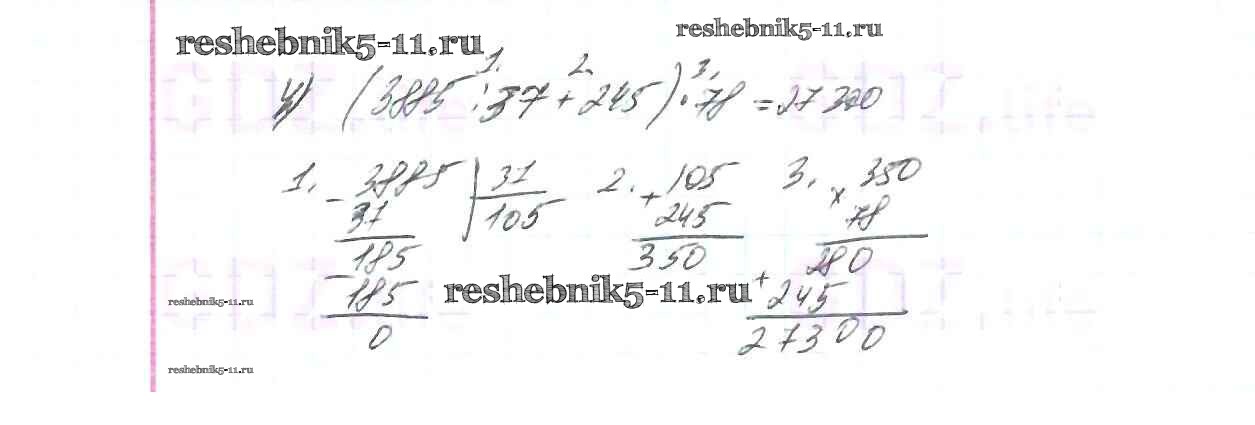 reshebnik5-11.ru reshebnik5-11.ru
1. 2. 3.
4) (3885 : 37 + 245) · 78 = 27300
1. - 3885 | 37 2. + 105 3. × 350
37 105 245 78
185 350 280
- 185 reshebnik5-11.ru + 245
reshebnik5-11.ru
0 27300
reshebnik5-11.ru